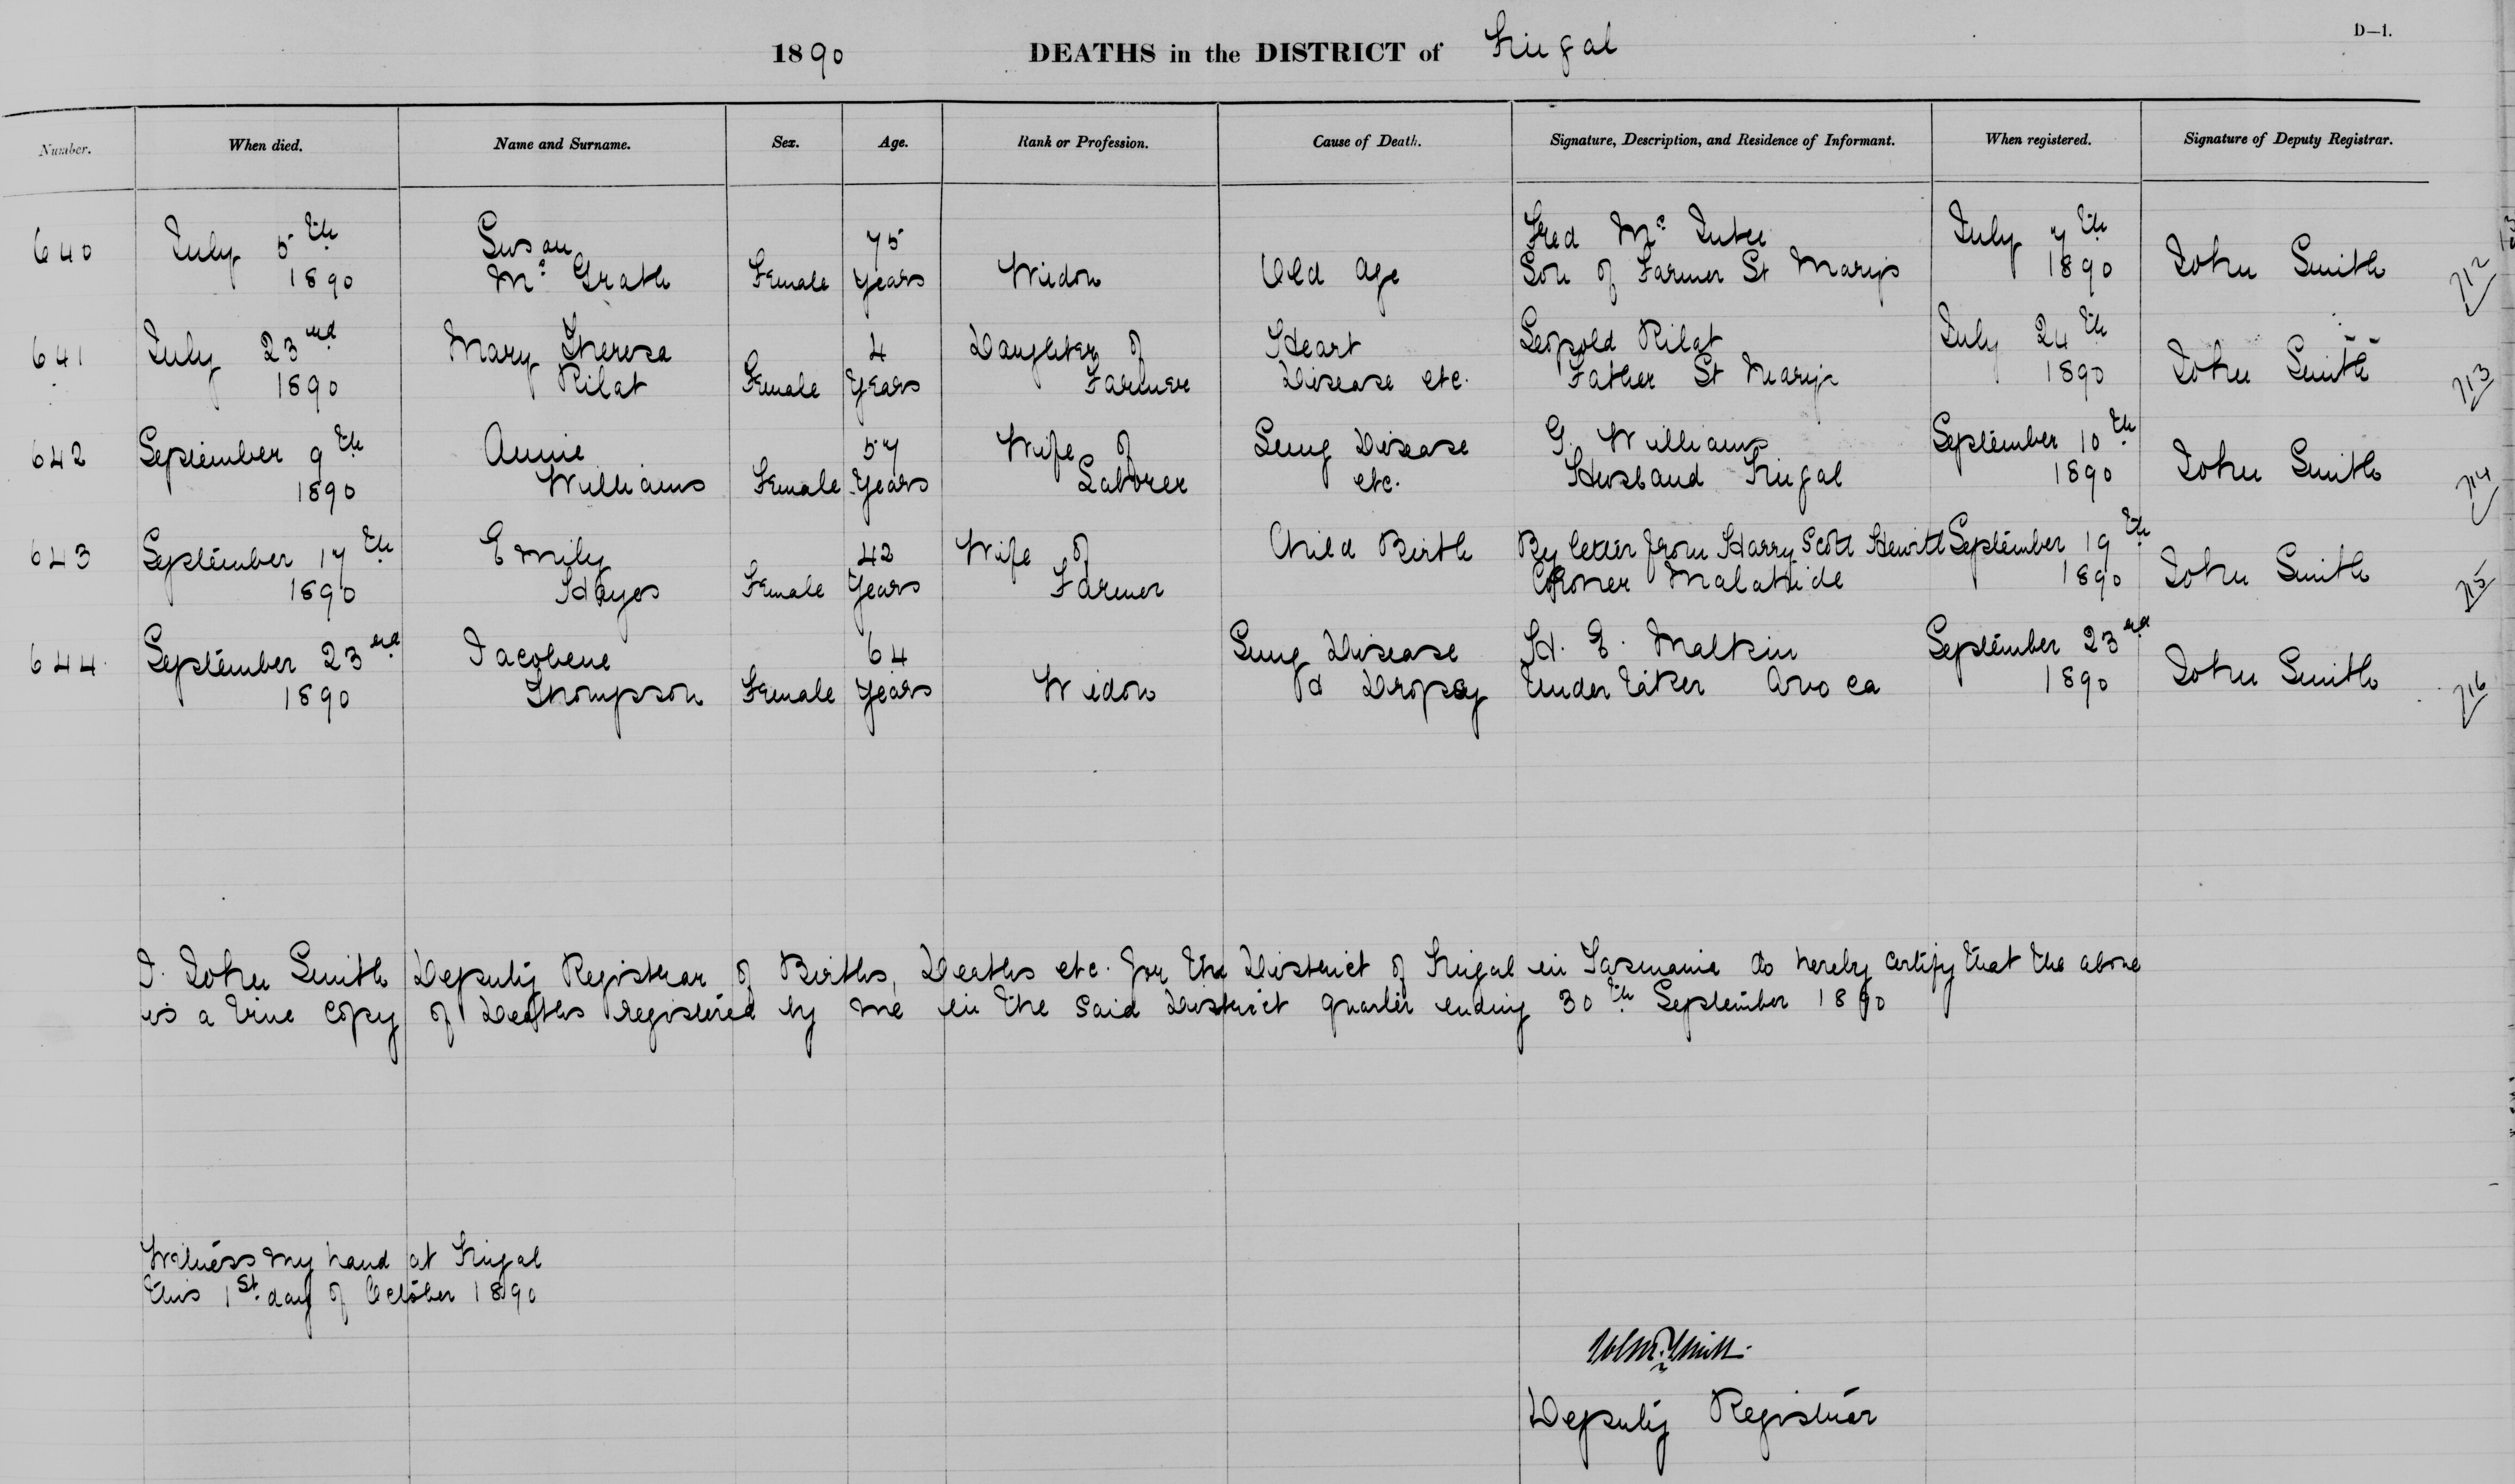 D—1.
1890 DEATHS in the DISTRICT of Fingal
Number. When died. Name and Surname. Sex. Age. Rank or Profession. Cause of Death. Signature, Description, and Residence of Informant. When registered. Signature of Deputy Registrar.
640 July 5th Susan 75 Fred Mc Intee July 7th
1890 Mc Grath Female Years Widow Old Age Son of Farmer St Marys 1890 John Smith 712
641 July 23rd Mary Theresa 4 Daughter of Heart Leopold Rilat July 24th
1890 Rilat Female Years Farmer Disease etc. Father St Marys 1890 John Smith 713
642 September 9th Annie 57 Wife of Lung Disease G. Williams September 10th
1890 Williams Female Years Laborer etc. Husband Fingal 1890 John Smith 714
643 September 17th Emily 42 Wife of Child Birth By letter from Harry Scott Hewitt September 19th
1890 Hayes Female Years Farmer Coroner Malahide 1890 John Smith 715
644 September 23rd Jacobene 64 Lung Disease H. E. Malkin September 23rd
1890 Thompson Female Years Widow & Dropsy Undertaker Avoca 1890 John Smith 716
I. John Smith Deputy Registrar of Births, Deaths etc. for the District of Fingal in Tasmania do hereby certify that the above
is a true copy of Deaths registered by me in the said District quarter ending 30th September 1890
Witness my hand at Fingal
this 1st day of October 1890
John Smith
Deputy Registrar